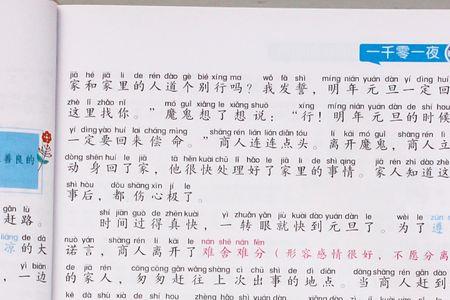 善良的
gǎn lù
赶路。
liáng de dà
凉的大
yì biān
，一边
一千零一夜
jiā hé jiā li de rén dào gè bié xíng ma wǒ fā shì míng nián yuán dàn yí dìng huí
家和家里的人道个别行吗？我发誓，明年元旦一定回
zhè lǐ zhǎo nǐ mó guǐ xiǎng le xiǎng shuō xíng míng nián yuán dàn de shí hou
这里找你。”魔鬼想了想说：“行！明年元旦的时候
yí dìng yào huí lai cháng mìng shāng rén lián lián diǎn tóu lí kāi mó guǐ shāng rén lì
一定要回来偿命。”商人连连点头。离开魔鬼，商人立
dòng shēn huí le jiā tā hěn kuài chǔ lǐ hǎo le jiā li de shì qing jiā rén zhī dào zhè
动身回了家，他很快处理好了家里的事情。家人知道这
shì hòu dōu shāng xīn jí le
事后，都伤心极了。
shí jiān guò de zhēn kuài yì zhuǎn yǎn jiù kuài dào yuán dàn le wèi le zūn
时间过得真快，一转眼就快到元旦了。为了遵
nuò yán shāng rén lí kāi le nán shě nán fēn
诺言，商人离开了难舍难分（形容感情很好，不愿分离
de jiā rén cōng cōng gǎn wǎng shàng cì chū shì de dì diǎn dāng shāng rén gǎn dào
的家人，匆匆赶往上次出事的地点。当商人赶到